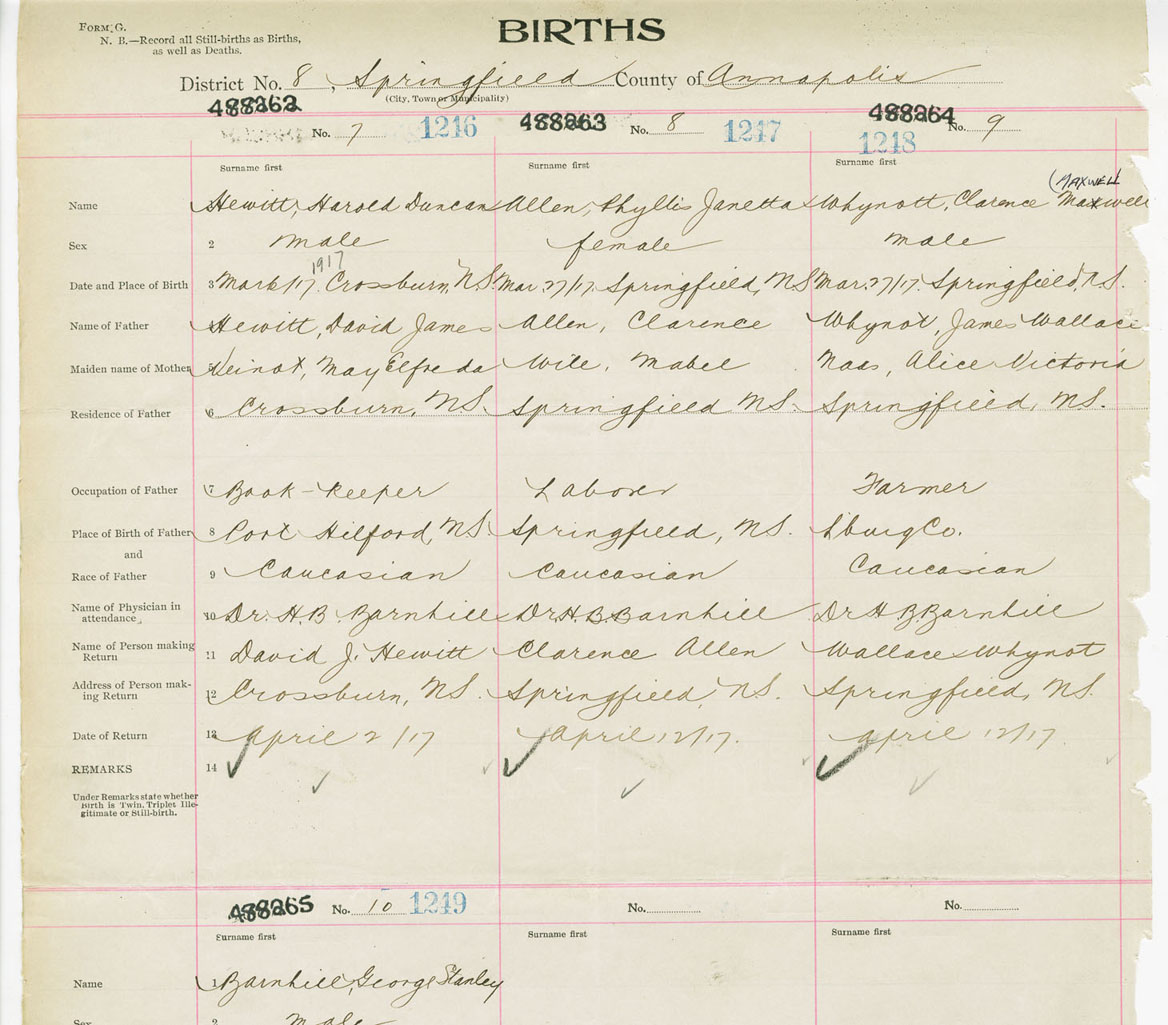 FORM G.
BIRTHS
N. B.—Record all Still-births as Births,
as well as Deaths.
District No. 8, Springfield County of Annapolis
(City, Town or Municipality)
488262 488263 488264
No. 7 1216 No. 8 1217 1218 No. 9
Surname first Surname first Surname first
(MAXWELL
Name Hewitt, Harold Duncan Allen, Phyllis Janetta Whynott, Clarence Maxwell
Sex 2 male female male
1917
Date and Place of Birth 3 Mar 6/17, Crossburn, N.S. Mar. 27/17, Springfield, NS Mar. 27/17 Springfield, N.S.
Name of Father Hewitt, David James Allen, Clarence Whynot, James Wallace
Maiden name of Mother May Elfreda Wile, Mabel Naas, Alice Victoria
Residence of Father 6 Crossburn, NS. Springfield NS. Springfield, N.S.
Occupation of Father 7 Book-keeper Laborer Farmer
Place of Birth of Father 8 Port Hilford, NS. Springfield, N.S. L'burg Co.
and
Race of Father 9 Caucasian Caucasian Caucasian
Name of Physician in
attendance 10 Dr. H. B. Barnhill Dr. H. B. Barnhill Dr H B. Barnhill
Name of Person making
Return 11 David J. Hewitt Clarence Allen Wallace Whynot
Address of Person mak-
ing Return 12 Crossburn, NS. Springfield, NS. Springfield, N.S.
Date of Return 13 April 2/17 April 12/17. April 12/17
REMARKS 14
Under Remarks state whether
Birth is Twin, Triplet Ille-
gitimate or Still-birth.
488265 No. 10 1219 No. No.
Surname first Surname first Surname first
Name 1 Barnhill, George Stanley
Sex 2 male